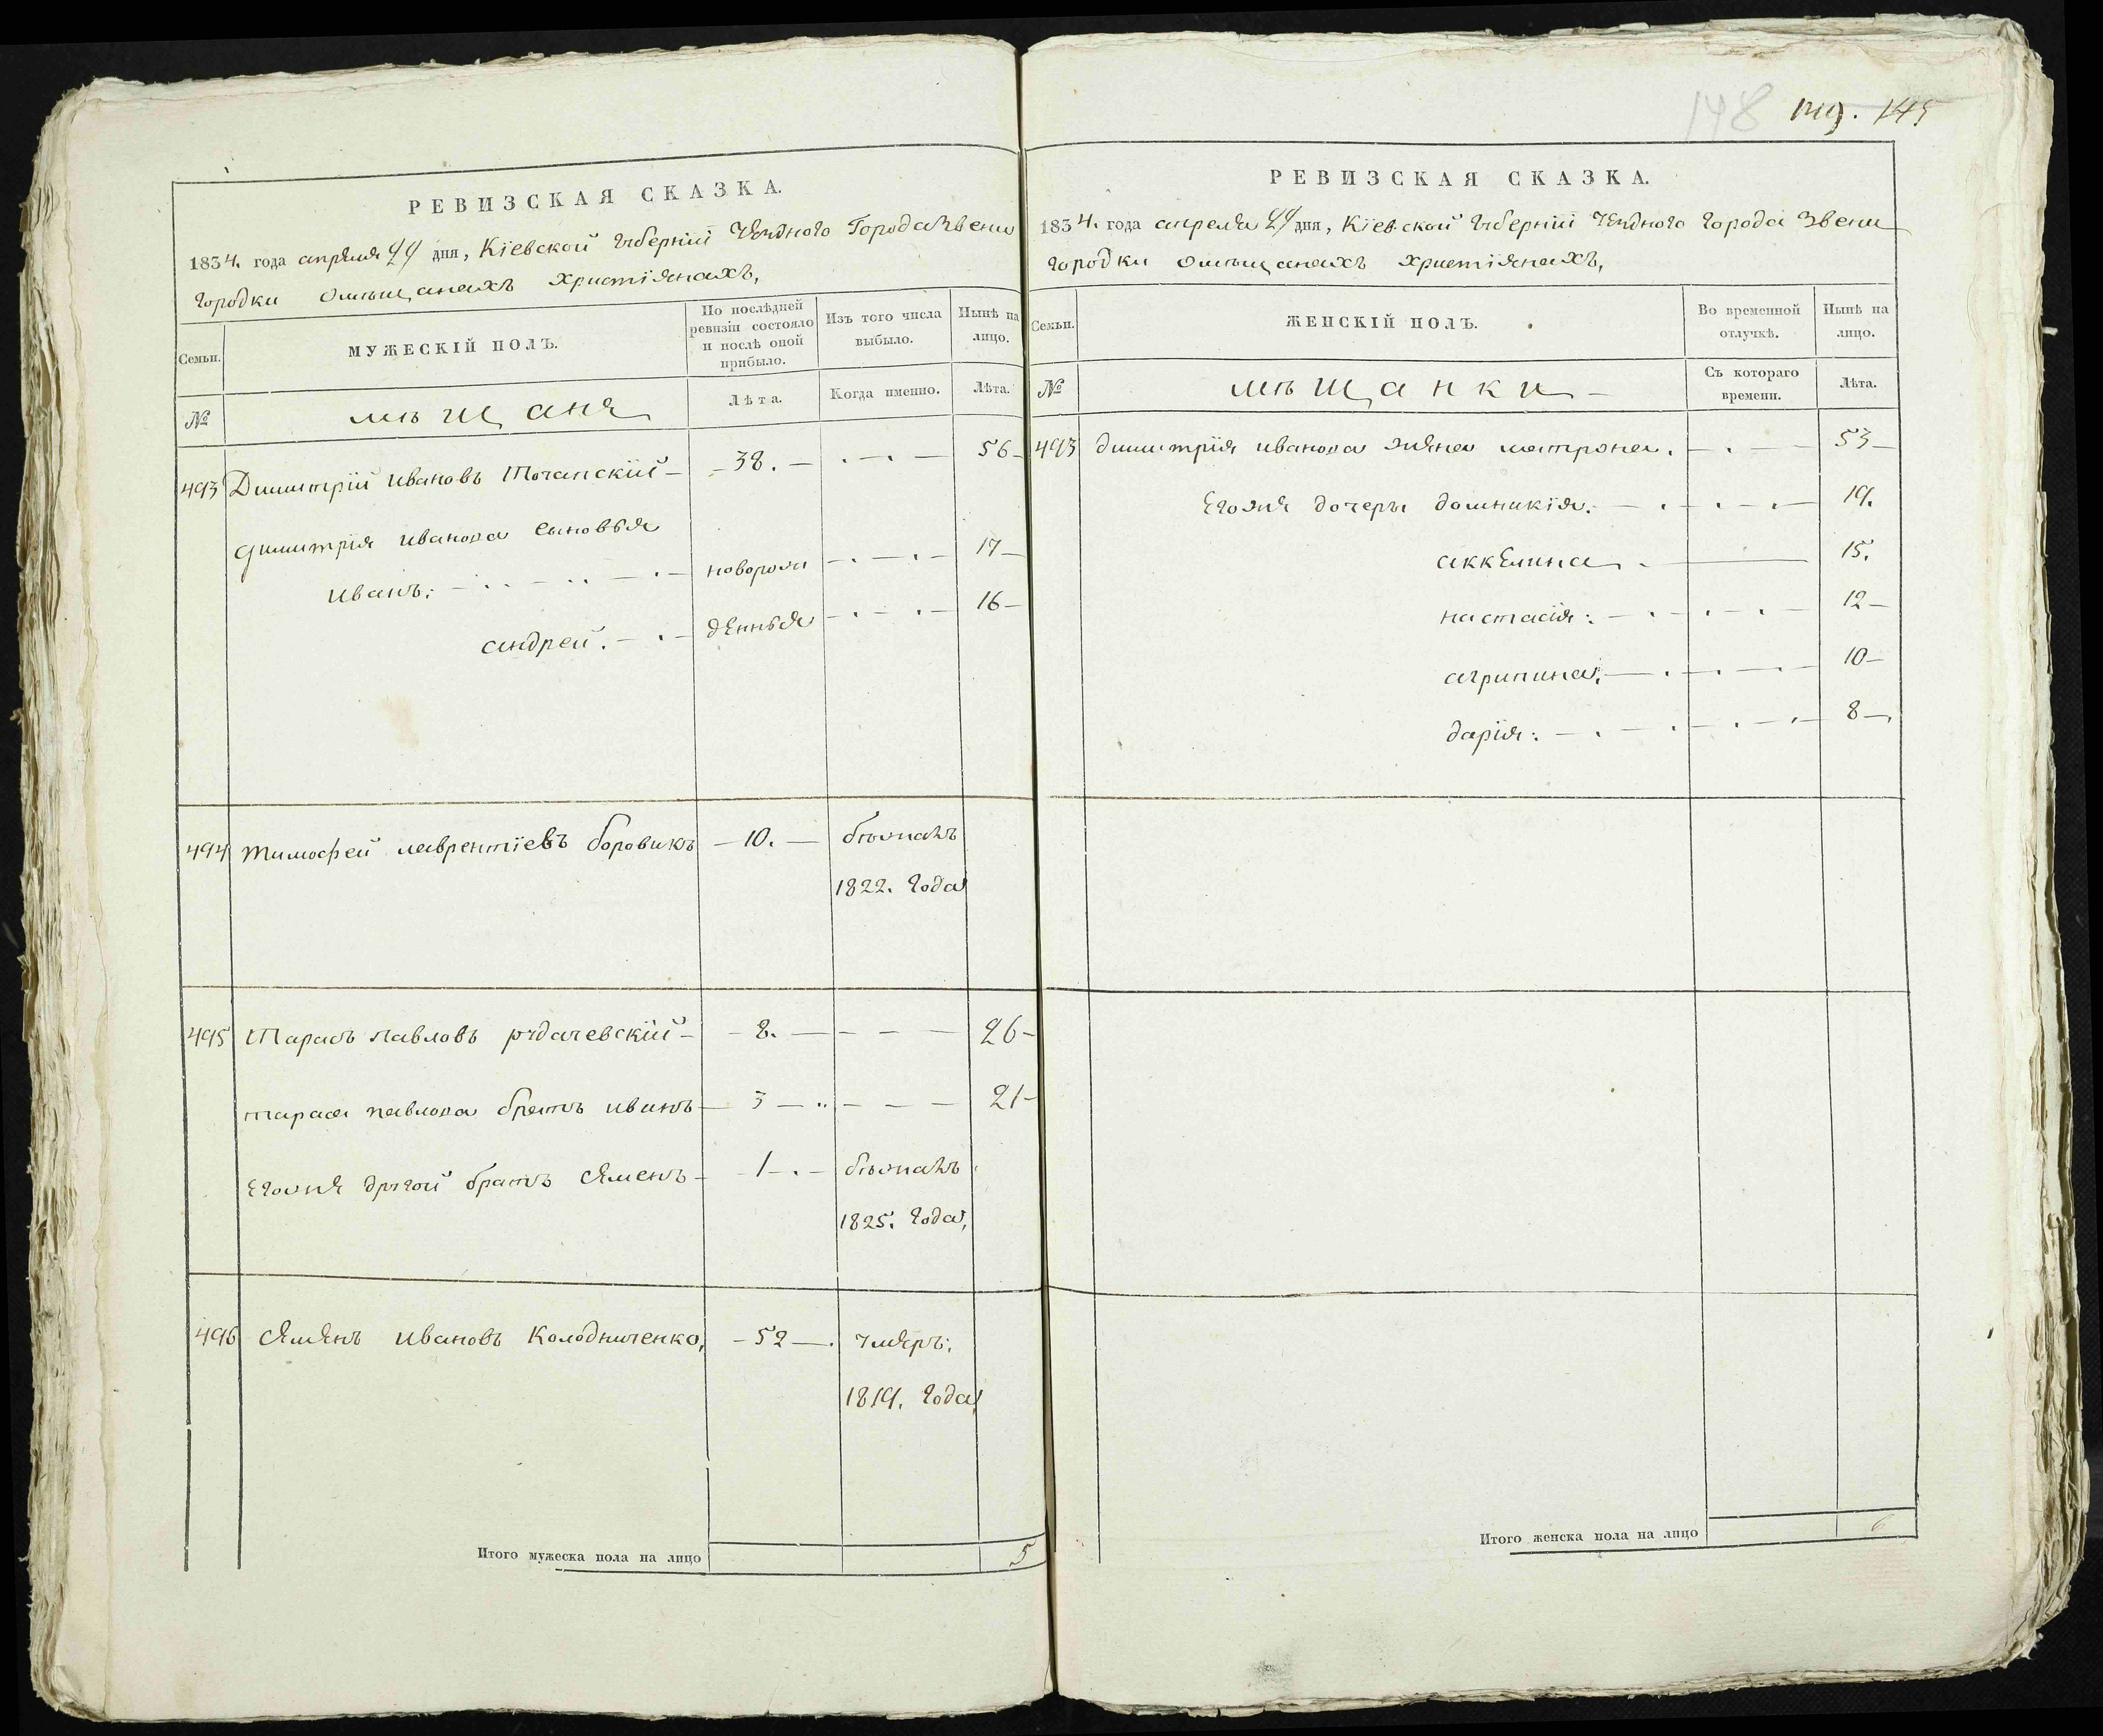 148 149. 145
РЕВИЗСКАЯ СКАЗКА.
1834. года апреля 24 дня, Кіевской губерніи уезднаго Города Звени
городки омѣщанахъ христіянахъ,
Семьи.
МУЖЕСКІЙ ПОЛЪ.
По послѣдней ревизіи состояло и послѣ оной прибыло.
Изъ того числа выбыло.
Нынѣ на лицо.
№
мѣщане
Лѣта.
Когда именно.
Лѣта.
493 Димитрій Ивановъ Точанскій — 38. — 56
димитрія иванова сыновья
иванъ: новорож 17
андрей. денныя 16
494 тимофей лаврентіевъ боровикъ — 10. — бѣжалъ
1822. года
495 Тарасъ павловъ рудачевскій — 8. — 26
тараса павлова братъ иванъ — 3 — 21
егоже другой братъ семенъ — 1 — бѣжалъ
1825. года,
496 семенъ ивановъ Колодниченко, — 52 — умеръ:
1819. года
Итого мужеска пола на лицо 5
РЕВИЗСКАЯ СКАЗКА.
1834. года апреля 24 дня, Кіевской губерніи уезднаго города Звени
городки омѣщанахъ христіянахъ,
Семьи.
ЖЕНСКІЙ ПОЛЪ.
Во временной отлучкѣ.
Нынѣ на лицо.
№
мѣщанки
Съ котораго времени.
Лѣта.
493 димитрія иванова жена матрона. 53
егоже дочеры домникія. 19.
аккелина 15.
настасія: 12
агрипина: 10
дарія: 8
Итого женска пола на лицо 6